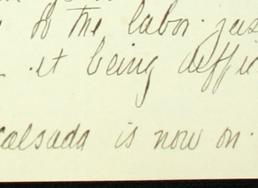 of the labor jus
it being diffic
calsada is now on.